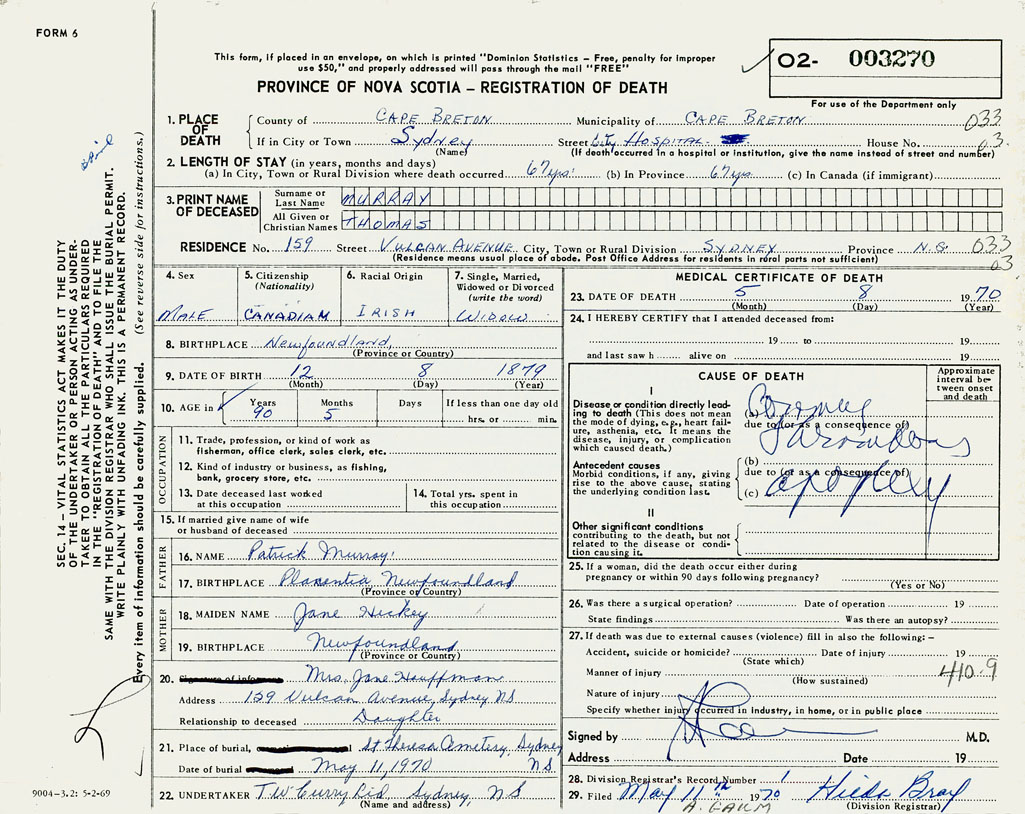 FORM 6
This form, if placed in an envelope, on which is printed "Dominion Statistics – Free, penalty for improper
use $50," and properly addressed will pass through the mail "FREE"
PROVINCE OF NOVA SCOTIA – REGISTRATION OF DEATH
02- 003270
For use of the Department only
1. PLACE OF DEATH County of CAPE BRETON Municipality of CAPE BRETON 033
If in City or Town Sydney Street City Hospital House No. 03
(Name) (If death occurred in a hospital or institution, give the name instead of street and number)
2. LENGTH OF STAY (in years, months and days)
(a) In City, Town or Rural Division where death occurred 67 yrs (b) In Province 67 yrs (c) In Canada (if immigrant)
3. PRINT NAME OF DECEASED Surname or Last Name MURRAY
All Given or Christian Names THOMAS
RESIDENCE No. 159 Street VULCAN AVENUE City, Town or Rural Division SYDNEY Province N.S. 033
(Residence means usual place of abode. Post Office Address for residents in rural parts not sufficient) 03
4. Sex MALE
5. Citizenship (Nationality) CANADIAN
6. Racial Origin IRISH
7. Single, Married, Widowed or Divorced (write the word) WIDOW
8. BIRTHPLACE Newfoundland
(Province or Country)
9. DATE OF BIRTH 12 8 1879
(Month) (Day) (Year)
10. AGE in Years 90 Months 5 Days If less than one day old hrs. or min.
OCCUPATION
11. Trade, profession, or kind of work as
fisherman, office clerk, sales clerk, etc.
12. Kind of industry or business, as fishing,
bank, grocery store, etc.
13. Date deceased last worked
at this occupation
14. Total yrs. spent in
this occupation
15. If married give name of wife
or husband of deceased
FATHER
16. NAME Patrick Murray
17. BIRTHPLACE Placentia Newfoundland
(Province or Country)
MOTHER
18. MAIDEN NAME Jane Hickey
19. BIRTHPLACE Newfoundland
(Province or Country)
20. Mrs. Jane Hauffman
Address 159 Vulcan Avenue, Sydney NS
Relationship to deceased Daughter
21. Place of burial, St Theresa Cemetery, Sydney
Date of burial May 11, 1970 N.S.
22. UNDERTAKER T.W. Curry Ltd Sydney, NS
(Name and address)
MEDICAL CERTIFICATE OF DEATH
23. DATE OF DEATH 5 8 1970
(Month) (Day) (Year)
24. I HEREBY CERTIFY that I attended deceased from:
19 to 19
and last saw h alive on 19
CAUSE OF DEATH
Approximate interval between onset and death
I
Disease or condition directly leading to death (This does not mean the mode of dying, e.g., heart failure, asthenia, etc. It means the disease, injury, or complication which caused death.)
(a) Coronary
due to (or as a consequence of)
Antecedent causes
Morbid conditions, if any, giving rise to the above cause, stating the underlying condition last.
(b)
due to (or as a consequence of)
(c)
II
Other significant conditions
contributing to the death, but not
related to the disease or condition causing it.
25. If a woman, did the death occur either during
pregnancy or within 90 days following pregnancy?
(Yes or No)
26. Was there a surgical operation? Date of operation 19
State findings Was there an autopsy?
27. If death was due to external causes (violence) fill in also the following: –
Accident, suicide or homicide? Date of injury 19
(State which)
Manner of injury 410.9
(How sustained)
Nature of injury
Specify whether injury occurred in industry, in home, or in public place
Signed by M.D.
Address Date 19
28. Division Registrar's Record Number 1
29. Filed May 11th 1970 Hilda Bray
(Division Registrar)
SEC. 14 – VITAL STATISTICS ACT MAKES IT THE DUTY
OF THE UNDERTAKER OR PERSON ACTING AS UNDER-
TAKER TO OBTAIN ALL THE PARTICULARS REQUIRED
IN THE "REGISTRATION OF DEATH" AND TO FILE THE
SAME WITH THE DIVISION REGISTRAR WHO SHALL ISSUE THE BURIAL PERMIT.
WRITE PLAINLY WITH UNFADING INK. THIS IS A PERMANENT RECORD.
Every item of information should be carefully supplied. (See reverse side for instructions.)
9004-3.2: 5-2-69